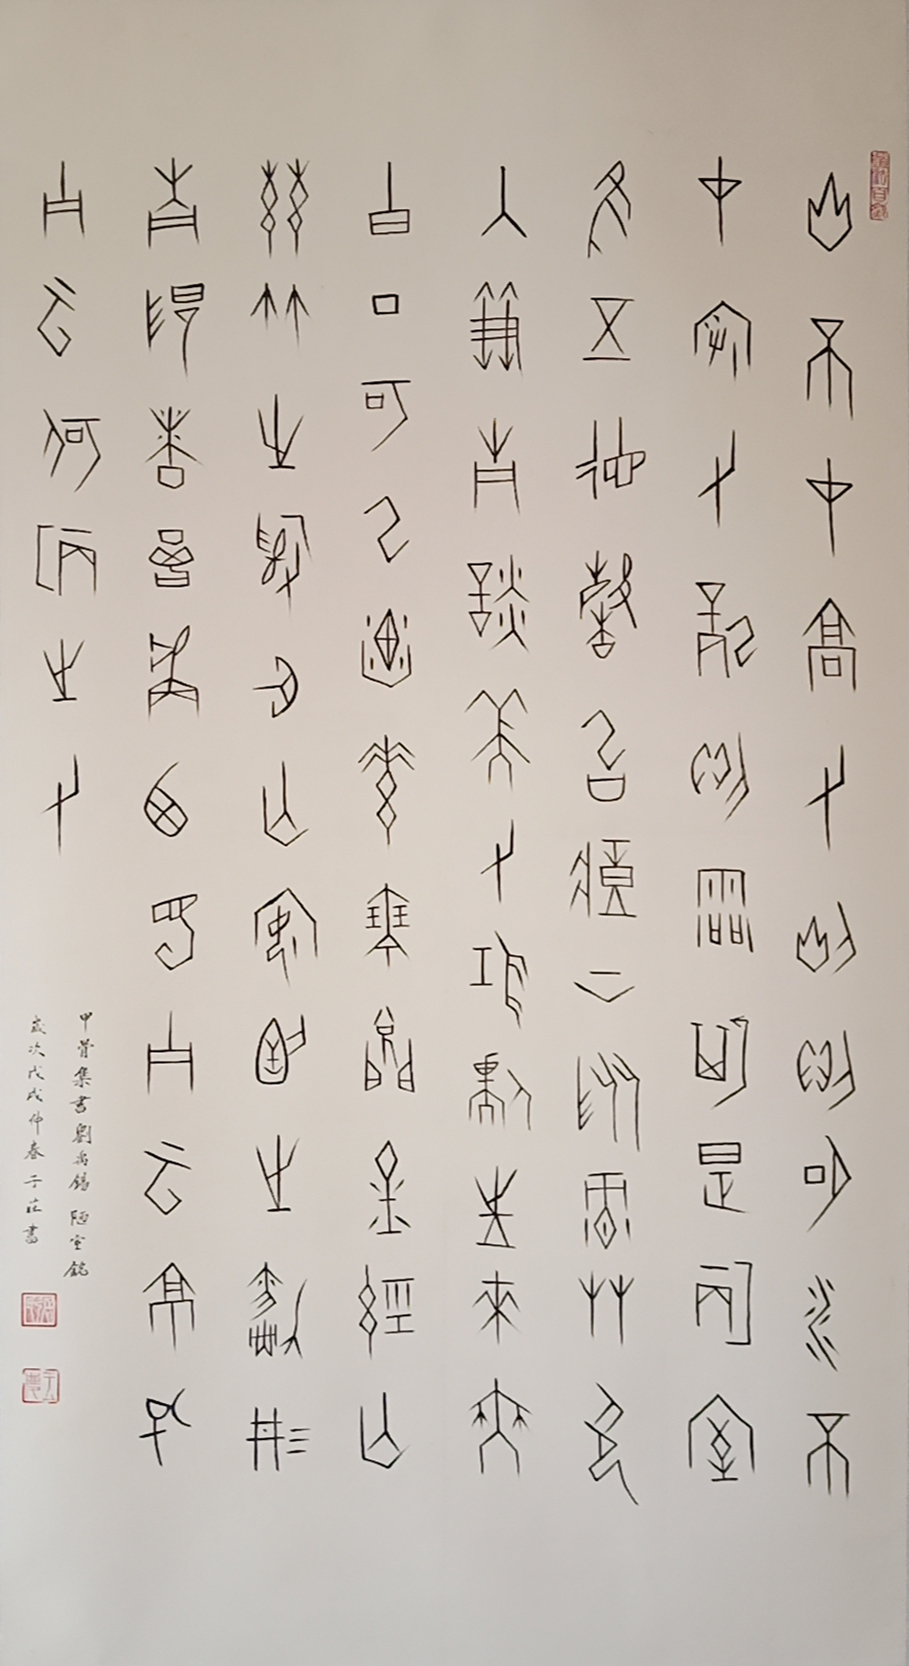 山不在高有仙則名水不
在深有龍則靈斯是陋室
惟吾德馨苔痕上階綠草色
入簾青談笑有鴻儒往來無
白丁可以調素琴閱金經無
絲竹之亂耳無案牘之勞形
南陽諸葛廬西蜀子雲亭孔
子云何陋之有
甲骨集書劉禹錫 陋室銘
歲次戊戌仲春 子莊書